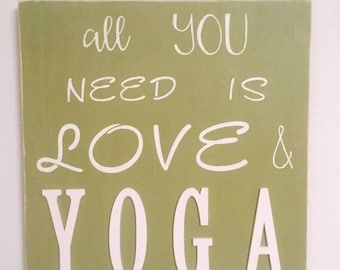 all YOU
NEED IS
LOVE &
YOGA